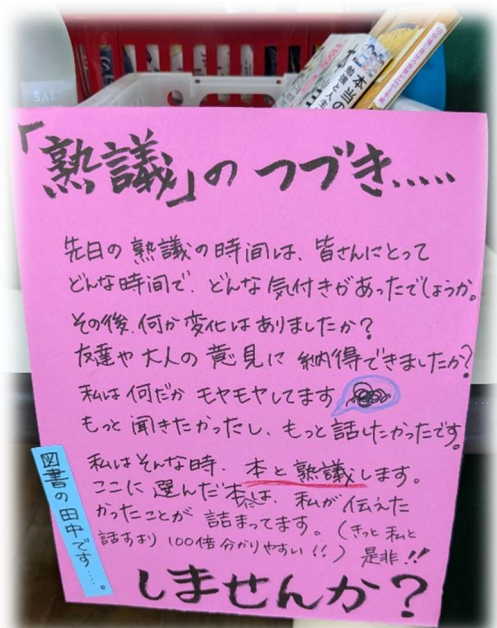 「熟議」のつづき.....
先日の熟議の時間は、皆さんにとって
どんな時間で、どんな気付きがあったでしょうか。
その後、何か変化はありましたか?
友達や大人の意見に納得できましたか?
私は何だかモヤモヤしてます
もっと聞きたかったし、もっと話したかったです。
私はそんな時、本と熟議します。
ここに選んだ本は、私が伝えた
かったことが詰まってます。(きっと私と
話すより100倍分かりやすい!!)是非!!
しませんか?
図書の田中です....。
本当の
勉強と人生